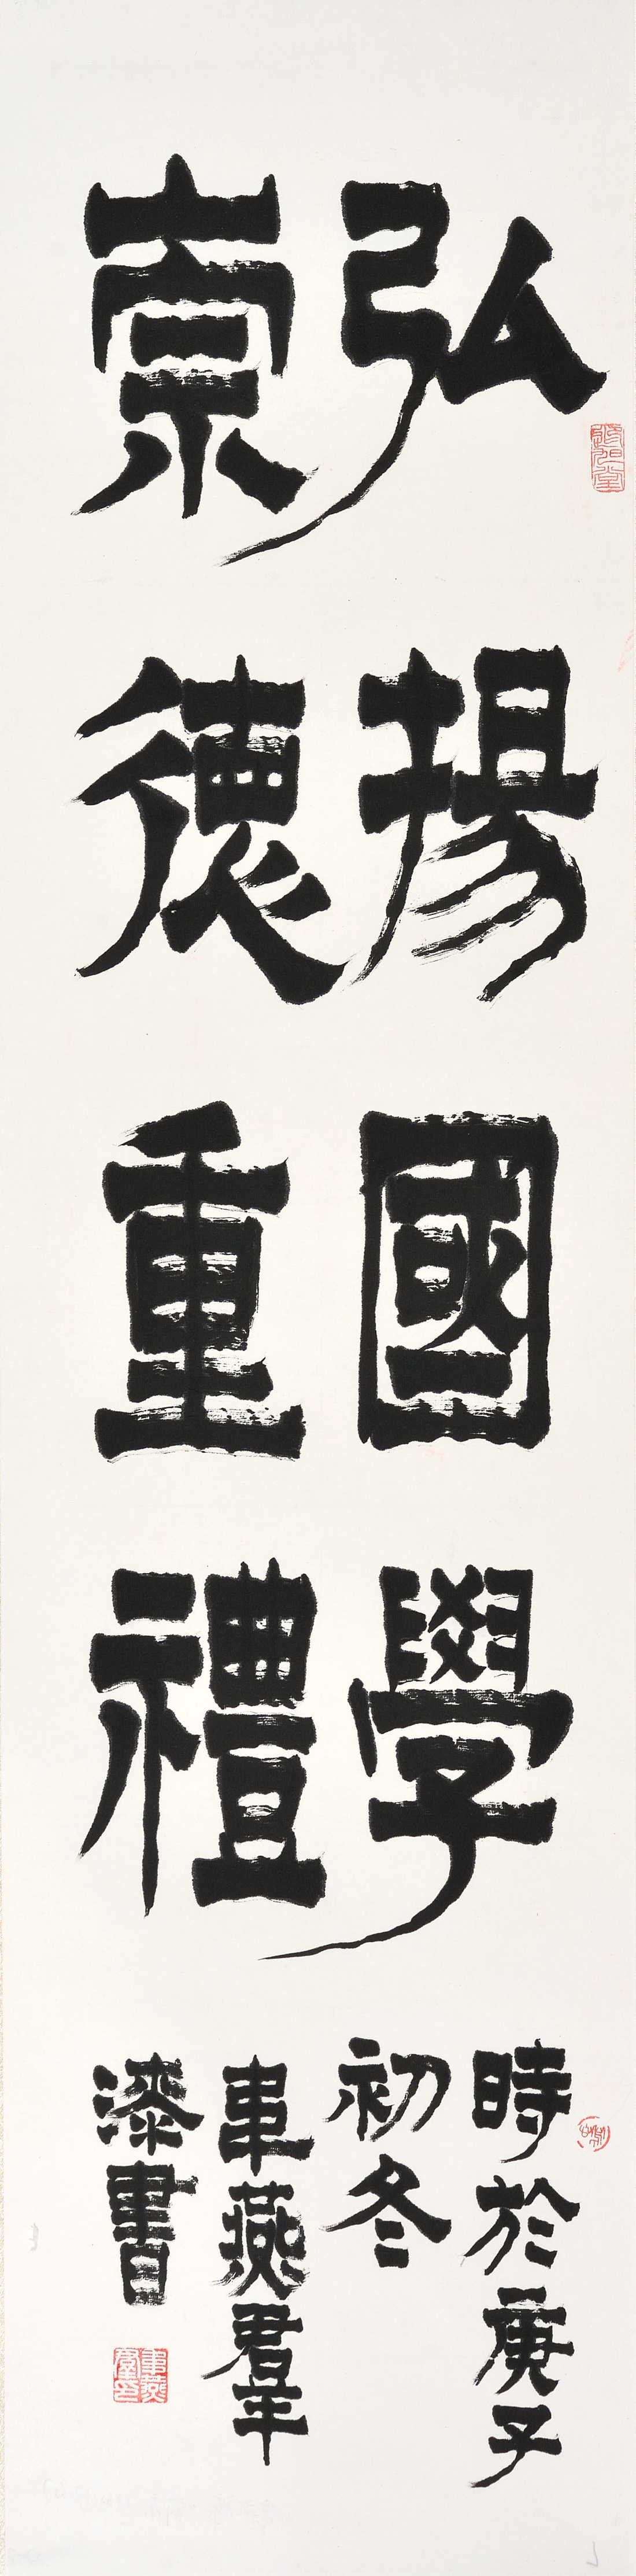 弘揚國學
崇德重禮
時於庚子
初冬
燕羣
漆書